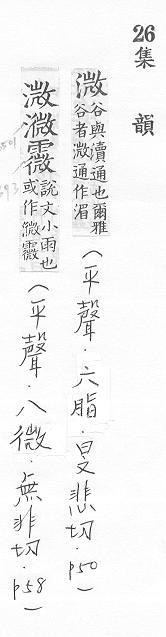 26集 韻
溦 谷與瀆通也爾雅
谷者溦通作湄
(平聲.六脂.旻悲切.p50)
溦 霺 說文小雨也
或作 霺
(平聲.八微.無非切.p58)